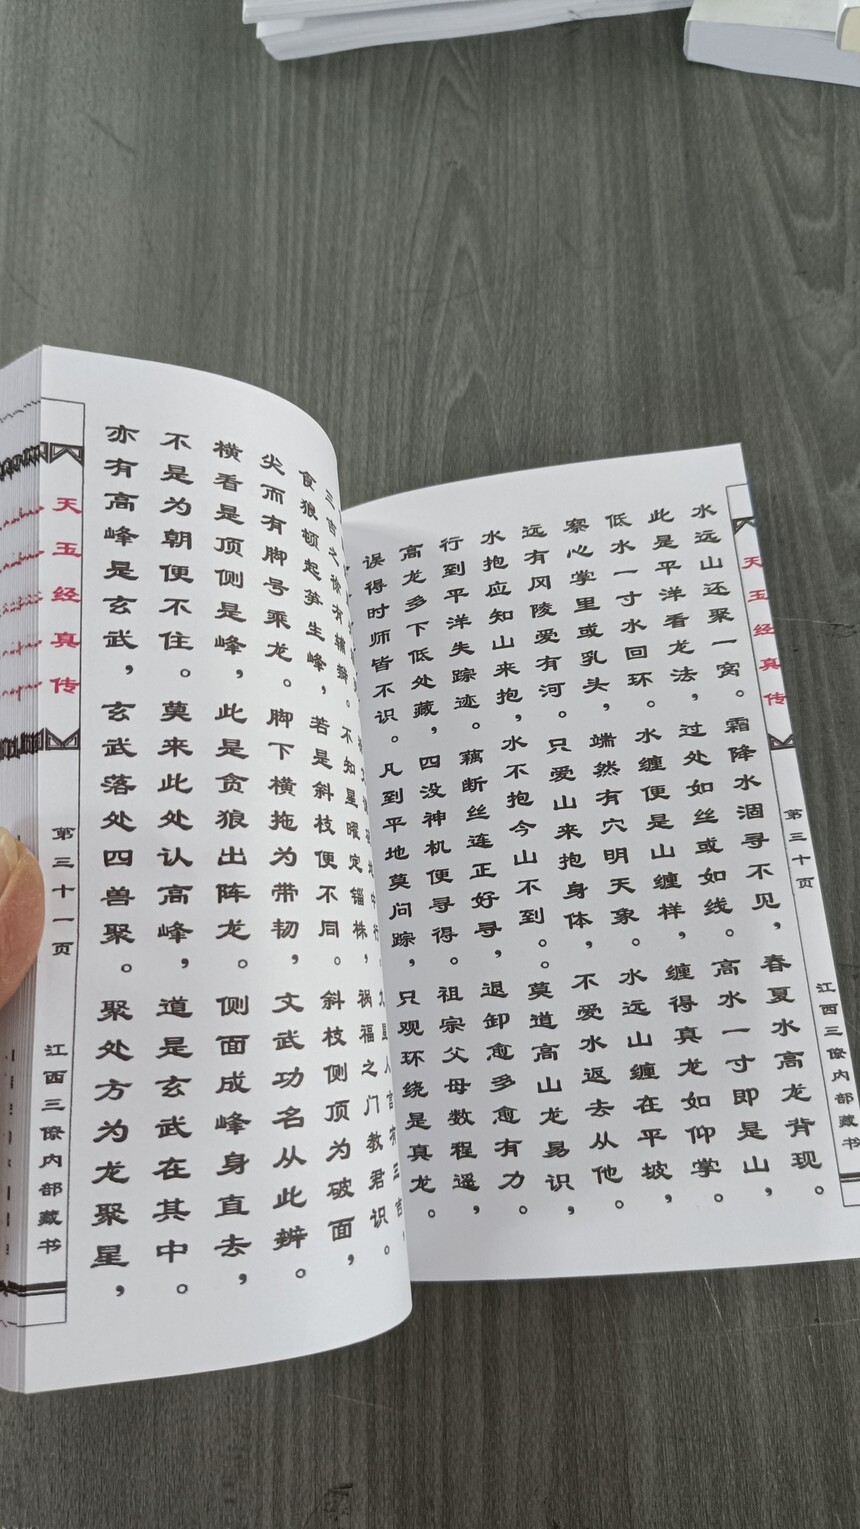 天玉经真传 第三十页 江西三僚内部藏书
水远山还聚一窝。霜降水涸寻不见,春夏水高龙背现。
此是平洋看龙法,过处如丝或如线。高水一寸即是山,
低水一寸水回环。水缠便是山缠样,缠得真龙如仰掌。
窠心掌里或乳头,端然有穴明天象。水远山缠在平坡,
远有冈陵爱有河。只爱山来抱身体,不爱水返去从他。
水抱应知山来抱,水不抱今山不到。莫道高山龙易识,
行到平洋失踪迹。藕断丝连正好寻,退卸愈多愈有力。
高龙多下低处藏,四没神机便寻得。祖宗父母数程遥,
误得时师皆不识。凡到平地莫问踪,只观环绕是真龙。
三吉之徐有辅弼。不知星曜定锱株,祸福之门教君识。
食狼顿起笋生峰,若是斜枝便不同。斜枝侧顶为破面,
尖而有脚号乘龙。脚下横拖为带韧,文武功名从此辨。
横看是顶侧是峰,此是贪狼出阵龙。侧面成峰身直去,
不是为朝便不住。莫来此处认高峰,道是玄武在其中。
亦有高峰是玄武,玄武落处四兽聚。聚处方为龙聚星,
天玉经真传 第三十一页 江西三僚内部藏书